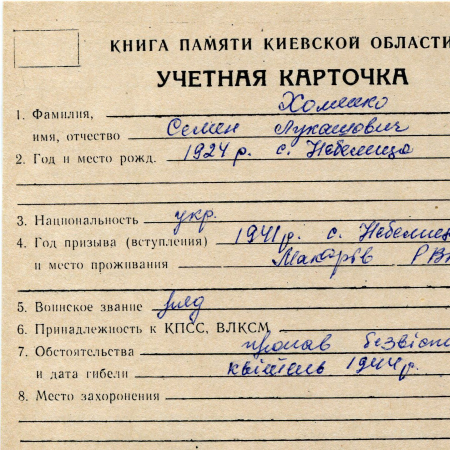 КНИГА ПАМЯТИ КИЕВСКОЙ ОБЛАСТИ
УЧЕТНАЯ КАРТОЧКА
1. Фамилия, Хоменко
имя, отчество Семен Лукашович
2. Год и место рожд. 1924 р. с. Небелиця
3. Национальность укр.
4. Год призыва (вступления) 1941 р. с. Небелиц
и место проживания Макарів РВ
5. Воинское звание ряд
6. Принадлежность к КПСС, ВЛКСМ
7. Обстоятельства пропав безвіст
и дата гибели квітень 1944 р.
8. Место захоронения